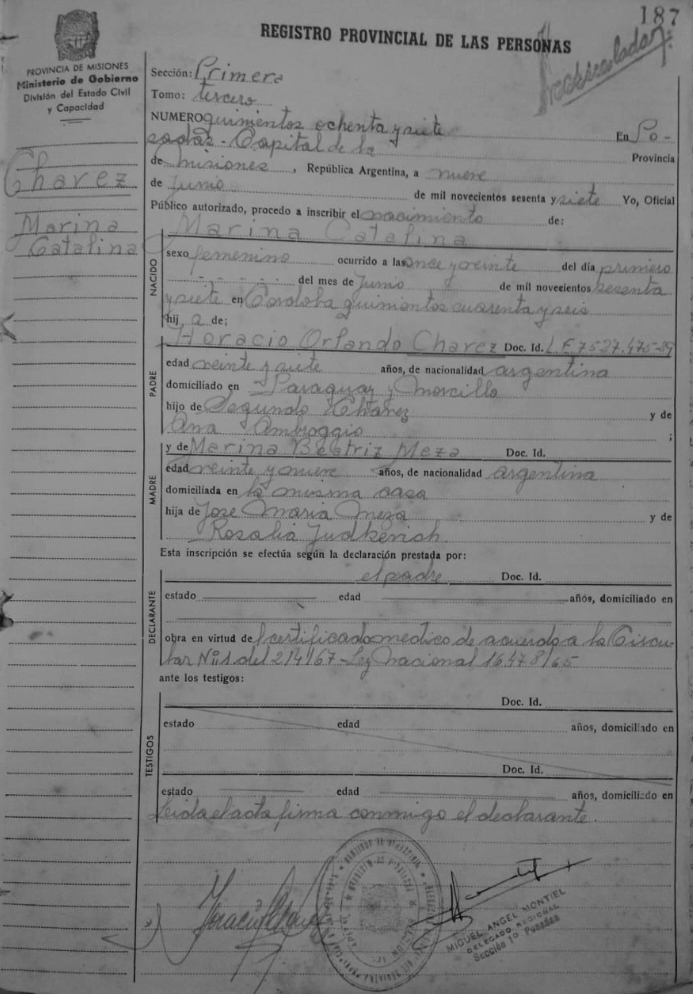 187
REGISTRO PROVINCIAL DE LAS PERSONAS
PROVINCIA DE MISIONES
Ministerio de Gobierno
División del Estado Civil
y Capacidad
Chavez
Marina
Catalina
Sección: Primera
Tomo: tercero
NUMERO quinientos ochenta y siete En Po-
sadas - Capital de la Provincia
de Misiones, República Argentina, a nueve
de Junio de mil novecientos sesenta y siete Yo, Oficial
Público autorizado, procedo a inscribir el nacimiento de:
NACIDO
Marina Catalina
sexo femenino ocurrido a las once y veinte del día primero
del mes de Junio de mil novecientos sesenta
y siete en Cordoba quinientos cuarenta y seis
hij a de;
PADRE
Horacio Orlando Chavez Doc. Id. L.E. 7527.475-
edad veinte y siete años, de nacionalidad argentina
domiciliado en Paraguay y Morcillo
hijo de Segundo Chavez y de
Ana Ambroggio ;
MADRE
y de Marina Beatriz Meza Doc. Id.
edad veinte y nueve años, de nacionalidad argentina
domiciliada en la misma casa
hija de José Maria Meza y de
Rosalia
Esta inscripción se efectúa según la declaración prestada por:
DECLARANTE
el padre Doc. Id.
estado edad años, domiciliado en
obra en virtud del certificado médico de acuerdo a la Circu-
lar Nº1 del 2/4/67 - Ley Nacional 16.478/65
ante los testigos:
TESTIGOS
Doc. Id.
estado edad años, domiciliado en
Doc. Id.
estado edad años, domiciliado en
Leida el acta firma conmigo el declarante.
MIGUEL ANGEL MONTIEL
DELEGADO REGIONAL
Sección 1º Posadas